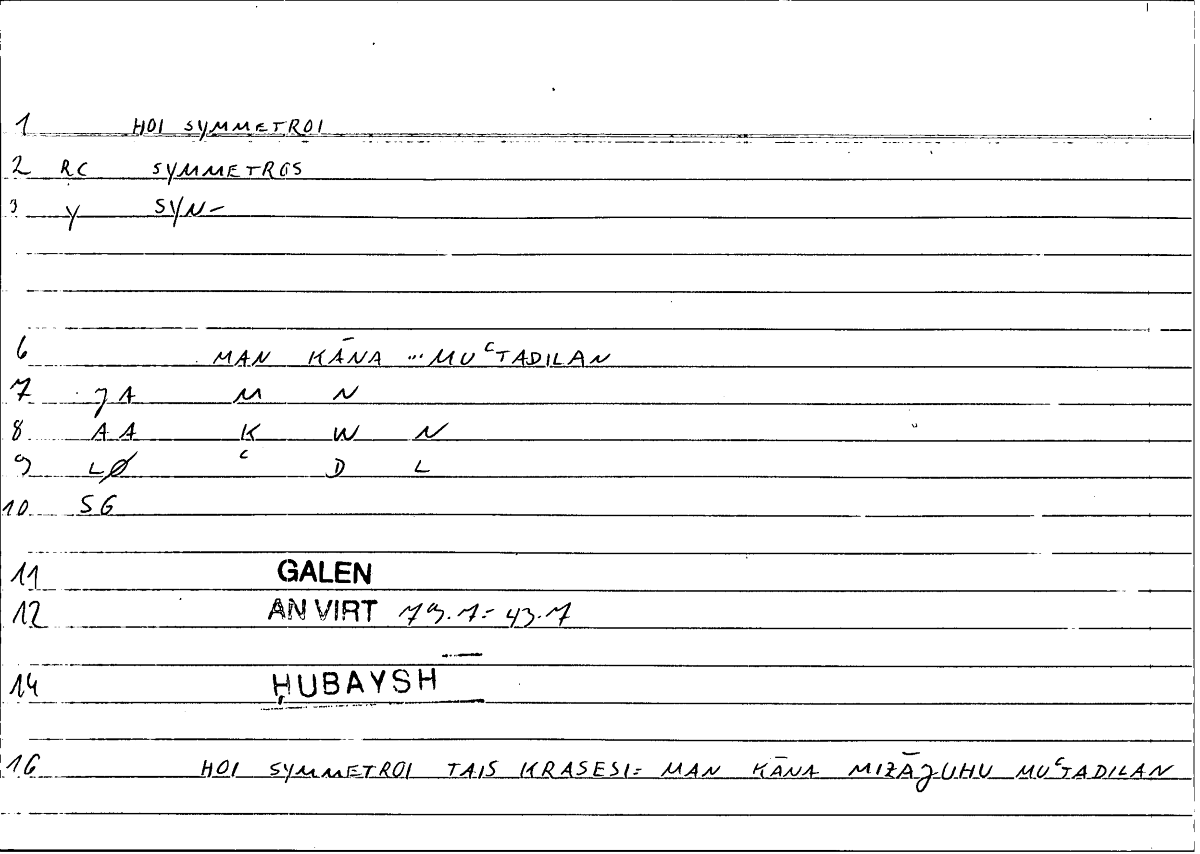 1 HOI SYMMETROI
2 RC SYMMETROS
3 Y SYN-
6 MAN KĀNA ... MUʿTADILAN
7 JA M N
8 AA K W N
9 LØ ʿ D L
10 SG
11 GALEN
12 AN VIRT 79.7 = 43.7
14 ḤUBAYSH
16 HOI SYMMETROI TAIS KRASESI = MAN KĀNA MIZĀJUHU MUʿTADILAN